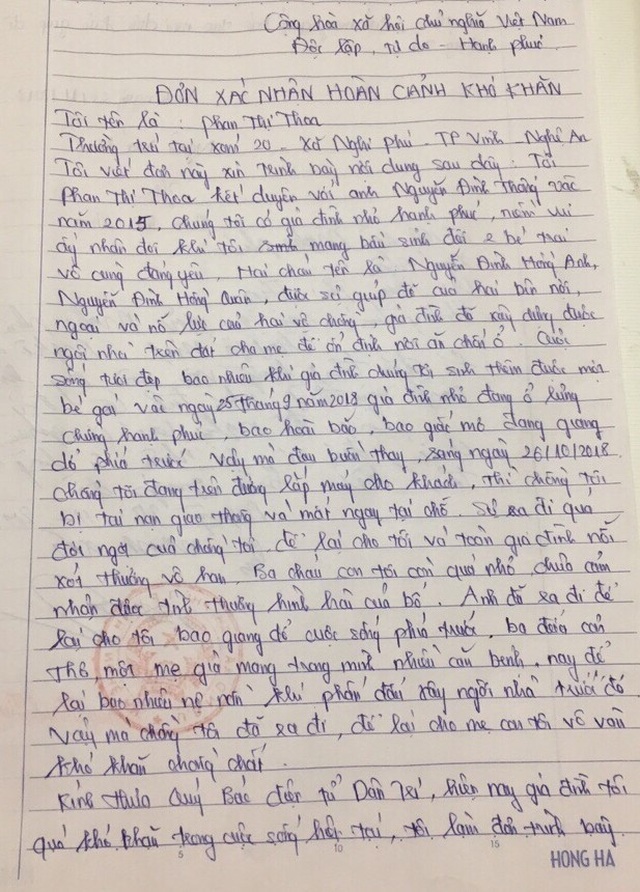 Cộng hòa xã hội chủ nghĩa Việt Nam
Độc lập, tự do - Hạnh phúc
ĐƠN XÁC NHÂN HOÀN CẢNH KHÓ KHĂN
Tôi tên là : Phan Thị Thoa
Thường trú tại xóm 20 - Xã Nghi phú - TP Vinh - Nghệ An
Tôi viết đơn này xin trình bày nội dung sau đây : Tôi
Phan Thị Thoa kết duyên với anh Nguyễn Đình Thắng vào
năm 2015, chúng tôi có gia đình nhỏ hạnh phúc, niềm vui
ấy nhân đôi khi tôi sinh mang bầu sinh đôi 2 bé trai
vô cùng đáng yêu, Hai cháu tên là Nguyễn Đình Hồng Anh,
Nguyễn Đình Hồng Quân, được sự giúp đỡ của hai bên nội,
ngoại và nỗ lực của hai vợ chồng, gia đình đã xây dựng được
ngôi nhà trên đất cha mẹ để ổn định nơi ăn chốn ở. Cuộc
sống tươi đẹp bao nhiêu khi gia đình chúng tôi sinh thêm được một
bé gái vào ngày 25 tháng 9 năm 2018 gia đình nhỏ đang ở lưng
chừng hạnh phúc, bao hoài bão, bao giấc mơ đang giang
dở phía trước vậy mà đau buồn thay, sáng ngày 26/10/2018
chồng tôi đang trên đường lắp máy cho khách, thì chồng tôi
bị tai nạn giao thông và mất ngay tại chỗ. Sự ra đi quá
đột ngột của chồng tôi, để lại cho tôi và toàn gia đình nỗi
xót thương vô hạn, Ba cháu con tôi còn quá nhỏ chưa cảm
nhận được tình thương hình hài của bố. Anh đã ra đi để
lại cho tôi bao giang dở cuộc sống phía trước, ba đứa con
thơ, một mẹ già mang trong mình nhiều căn bệnh, nay để
lại bao nhiêu nợ nần khi phấn đấu xây ngôi nhà trước đó
vậy mà chồng tôi đã ra đi, để lại cho mẹ con tôi vô vàn
khó khăn chồng chất.
Kính thưa Quý Báo điện tử Dân Trí, hiện nay gia đình tôi
quá khó khăn trong cuộc sống hiện tại, tôi làm đơn trình bày
5 10 15
HONG HA